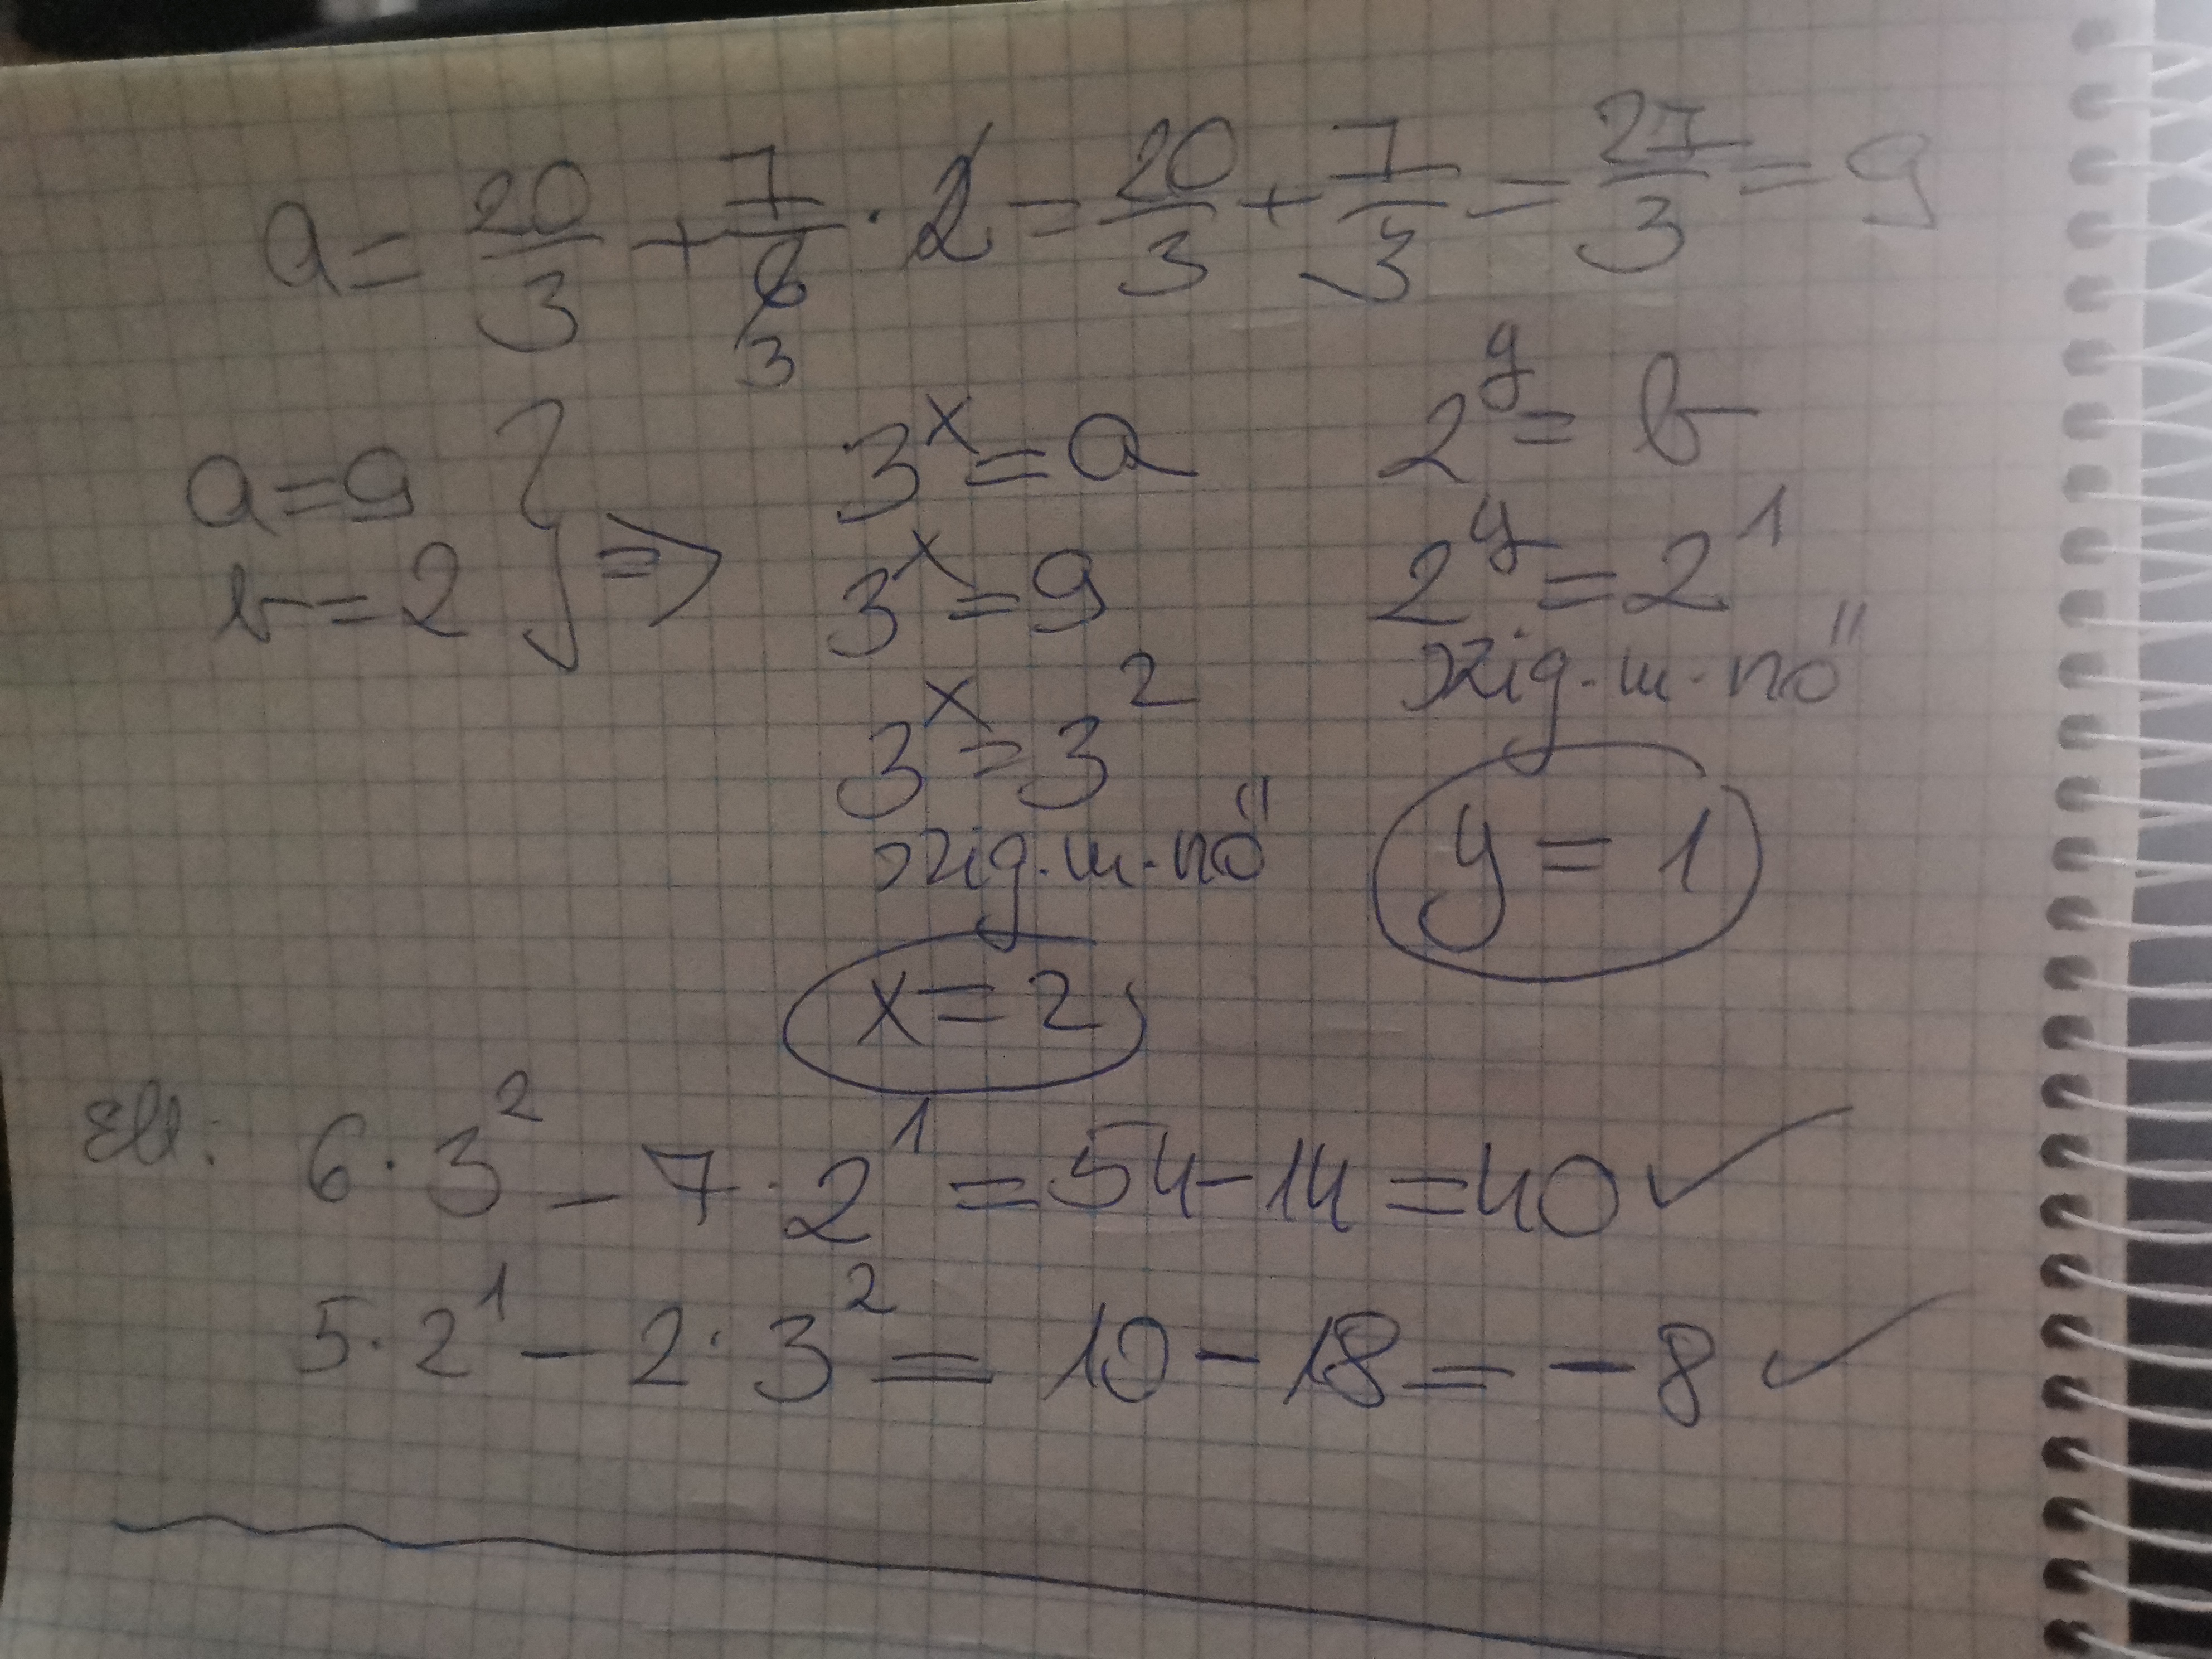 a = 20/3 + 7/6 · 2 = 20/3 + 7/3 = 27/3 = 9
3
a = 9 } ⇒ 3^x = a 2^y = b
b = 2 3^x = 9 2^y = 2^1
3^x = 3^2 szig. m. nő
szig. m. nő y = 1
x = 2
Ell: 6 · 3^2 - 7 · 2^1 = 54 - 14 = 40 ✓
5 · 2^1 - 2 · 3^2 = 10 - 18 = -8 ✓